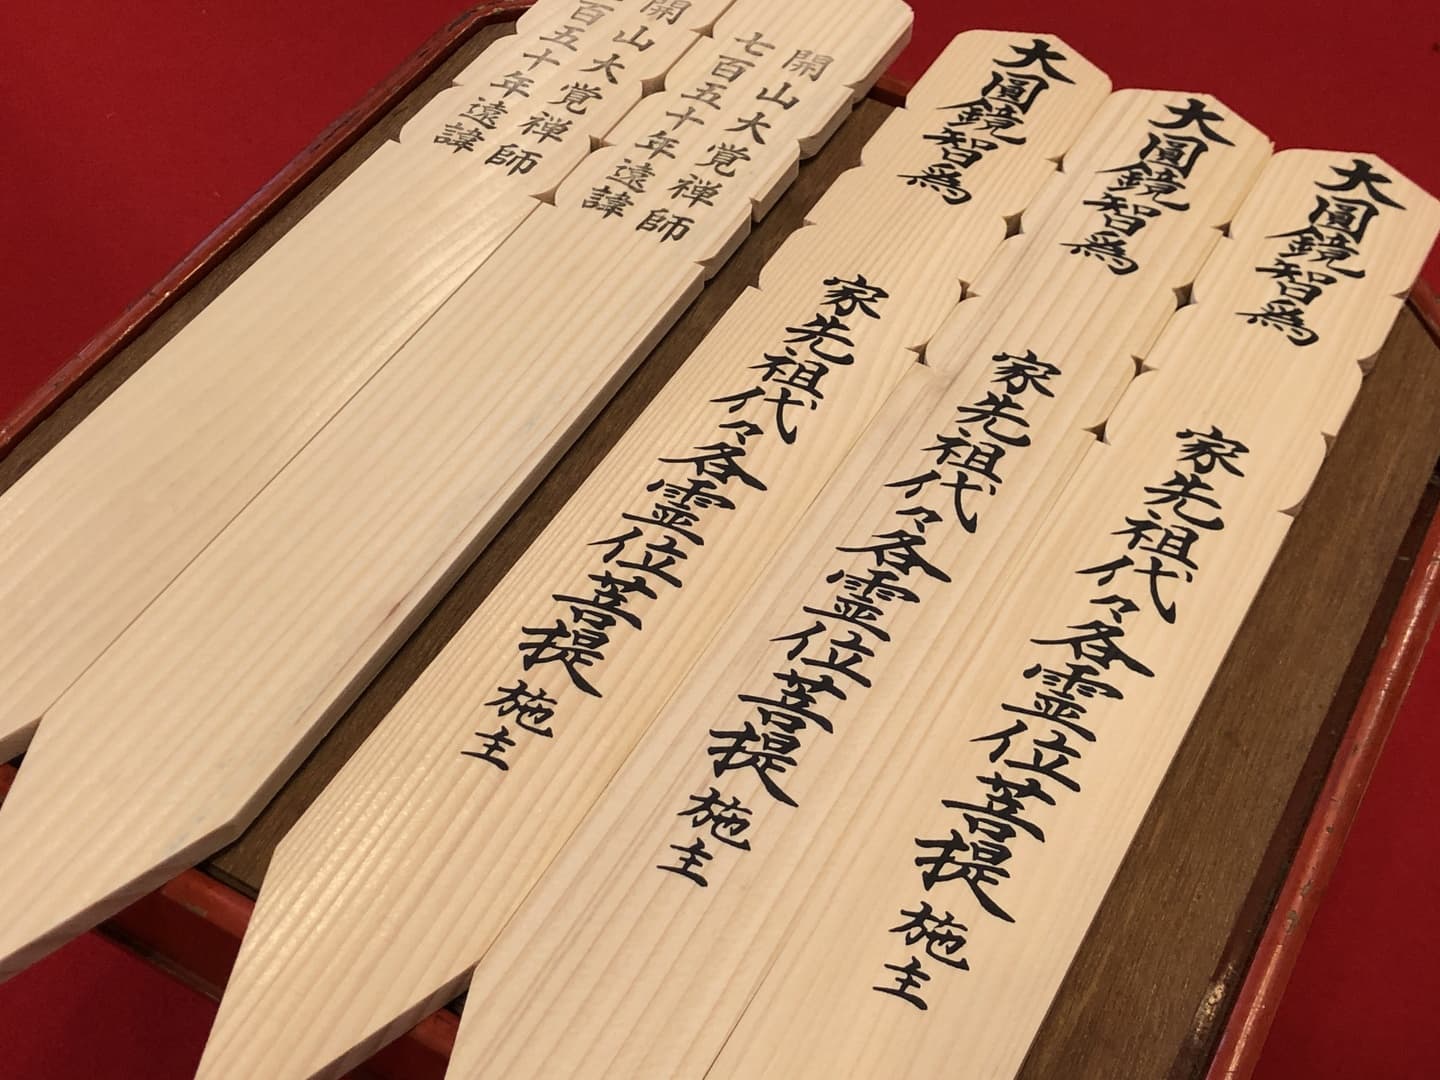 大圓鏡智為 家先祖代々各霊位菩提 施主
大圓鏡智為 家先祖代々各霊位菩提 施主
大圓鏡智為 家先祖代々各霊位菩提 施主
開山大覚禅師
七百五十年遠諱
開山大覚禅師
百五十年遠諱